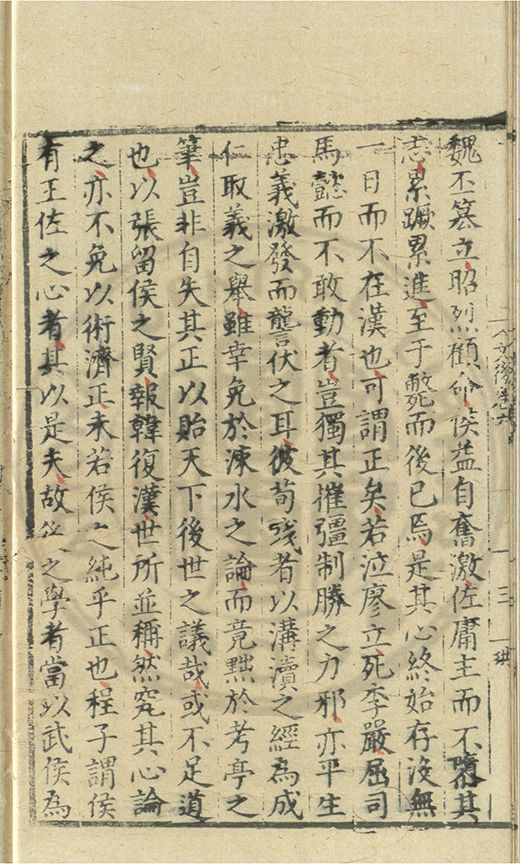 魏丕簒立昭烈顧命侯益自奮激佐庸主而不墮其
志累蹶累進至于斃而後已焉是其心終始存没無
一日而不在漢也可謂正矣若泣廖立死李嚴屈司
馬懿而不敢動者豈獨其摧彊制勝之力邪亦平生
忠義激發而讋伏之耳彼荀彧者以溝瀆之經為成
仁取義之舉雖幸免於涑水之論而竟黜於考亭之
筆豈非自失其正以貽天下後世之議哉或不足道
也以張留侯之賢報韓復漢世所並稱然究其心論
之亦不免以術濟正未若侯之純乎正也程子謂侯
有王佐之心者其以是夫故之學者當以武侯為